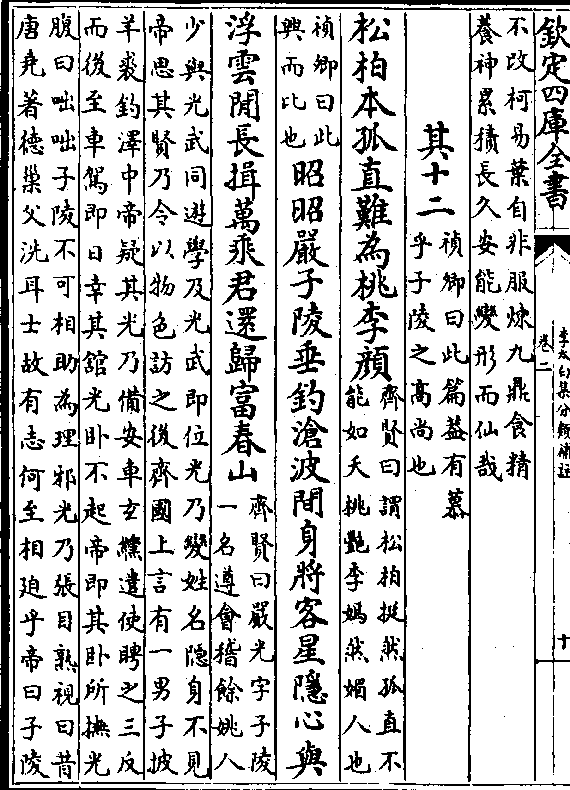 欽定四庫全書
李太白集分類補註
卷二
十
不改柯易葉自非服煉九鼎食精
養神累積長久安能變形而仙哉
其十二
禎卿曰此篇蓋有慕
乎子陵之高尚也
松柏本孤直難為桃李顔
齊賢曰謂松柏挺然孤直不
能如夭桃艷李嫣然媚人也
禎卿曰此
興而比也
昭昭嚴子陵垂釣滄波間身將客星隱心與
浮雲閒長揖萬乘君還歸富春山
齊賢曰嚴光字子陵
一名遵會稽餘姚人
少與光武同遊學及光武即位光乃變姓名隠身不見
帝思其賢乃令以物色訪之後齊國上言有一男子披
羊裘釣澤中帝疑其光乃備安車玄纁遣使聘之三反
而後至車駕即日幸其舘光卧不起帝即其卧所撫光
腹曰咄咄子陵不可相助為理邪光乃張目熟視曰昔
唐尭著德巢父洗耳士故有志何至相廹乎帝曰子陵